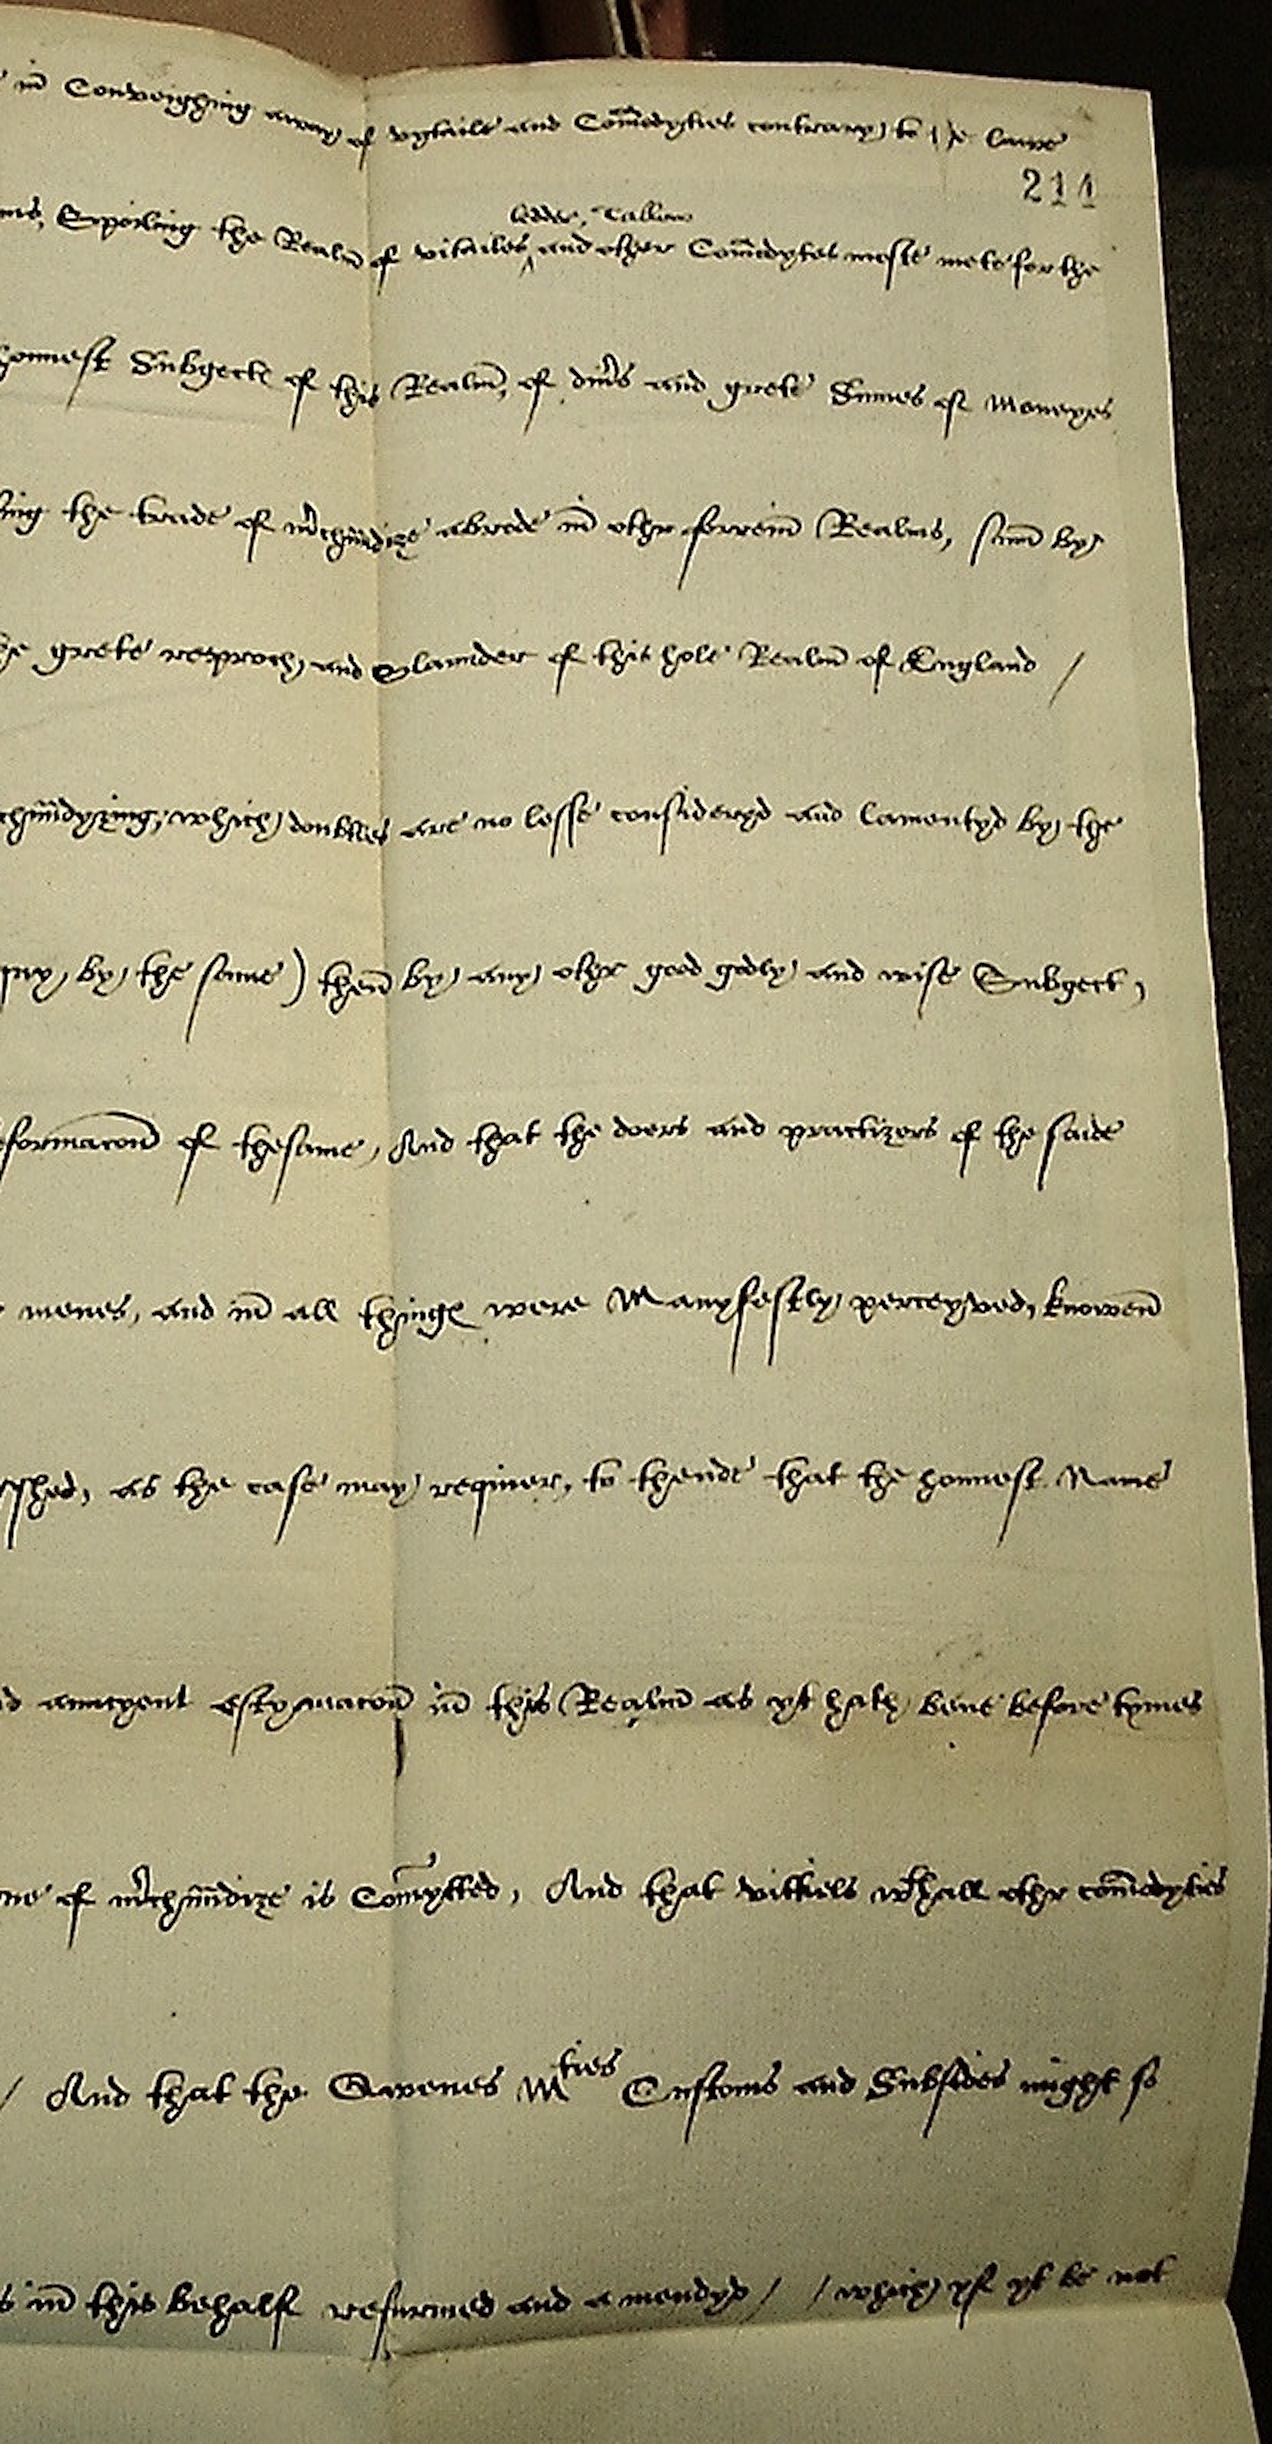 in Conveighing away of vytaile and Com̄odyties contrary to the lawe
211
ledder, Tallow
Spoiling the Realm̄ of vitailes, and other Com̄odytes moste mete for the
honnest Subgectes of this Realm̄, of div̄s and grete Summes of Moneyes
the trade of m̄chañdize abrode in other forrein Realms, som̄ by
grete reproch, and Slaunder of this hole Realm̄ of England /
which doubtles are no lesse consideryd and lamentyd by the
by the same) then̄ by any othr good godly and wise Subgect,
of thesame, And that the doers and practizers of the saide
menes, and in all thinges were Manyfestly perceyved, knowen̄
as the case may requier, to thende that the honnest Name
auncyent estymacon̄ in this Realm̄ as yt hath bene before tymes
of m̄chañdize is Com̄ytted, And that vittiels wᵗʰall othr com̄odyties
/ And that the Qwenes Mᵗⁱᵉˢ Customs and Subsides might so
in this behalf refurmed and amendyd / / which yf yt be not